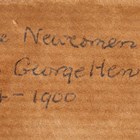 Newcomen
George Hen
- 1900